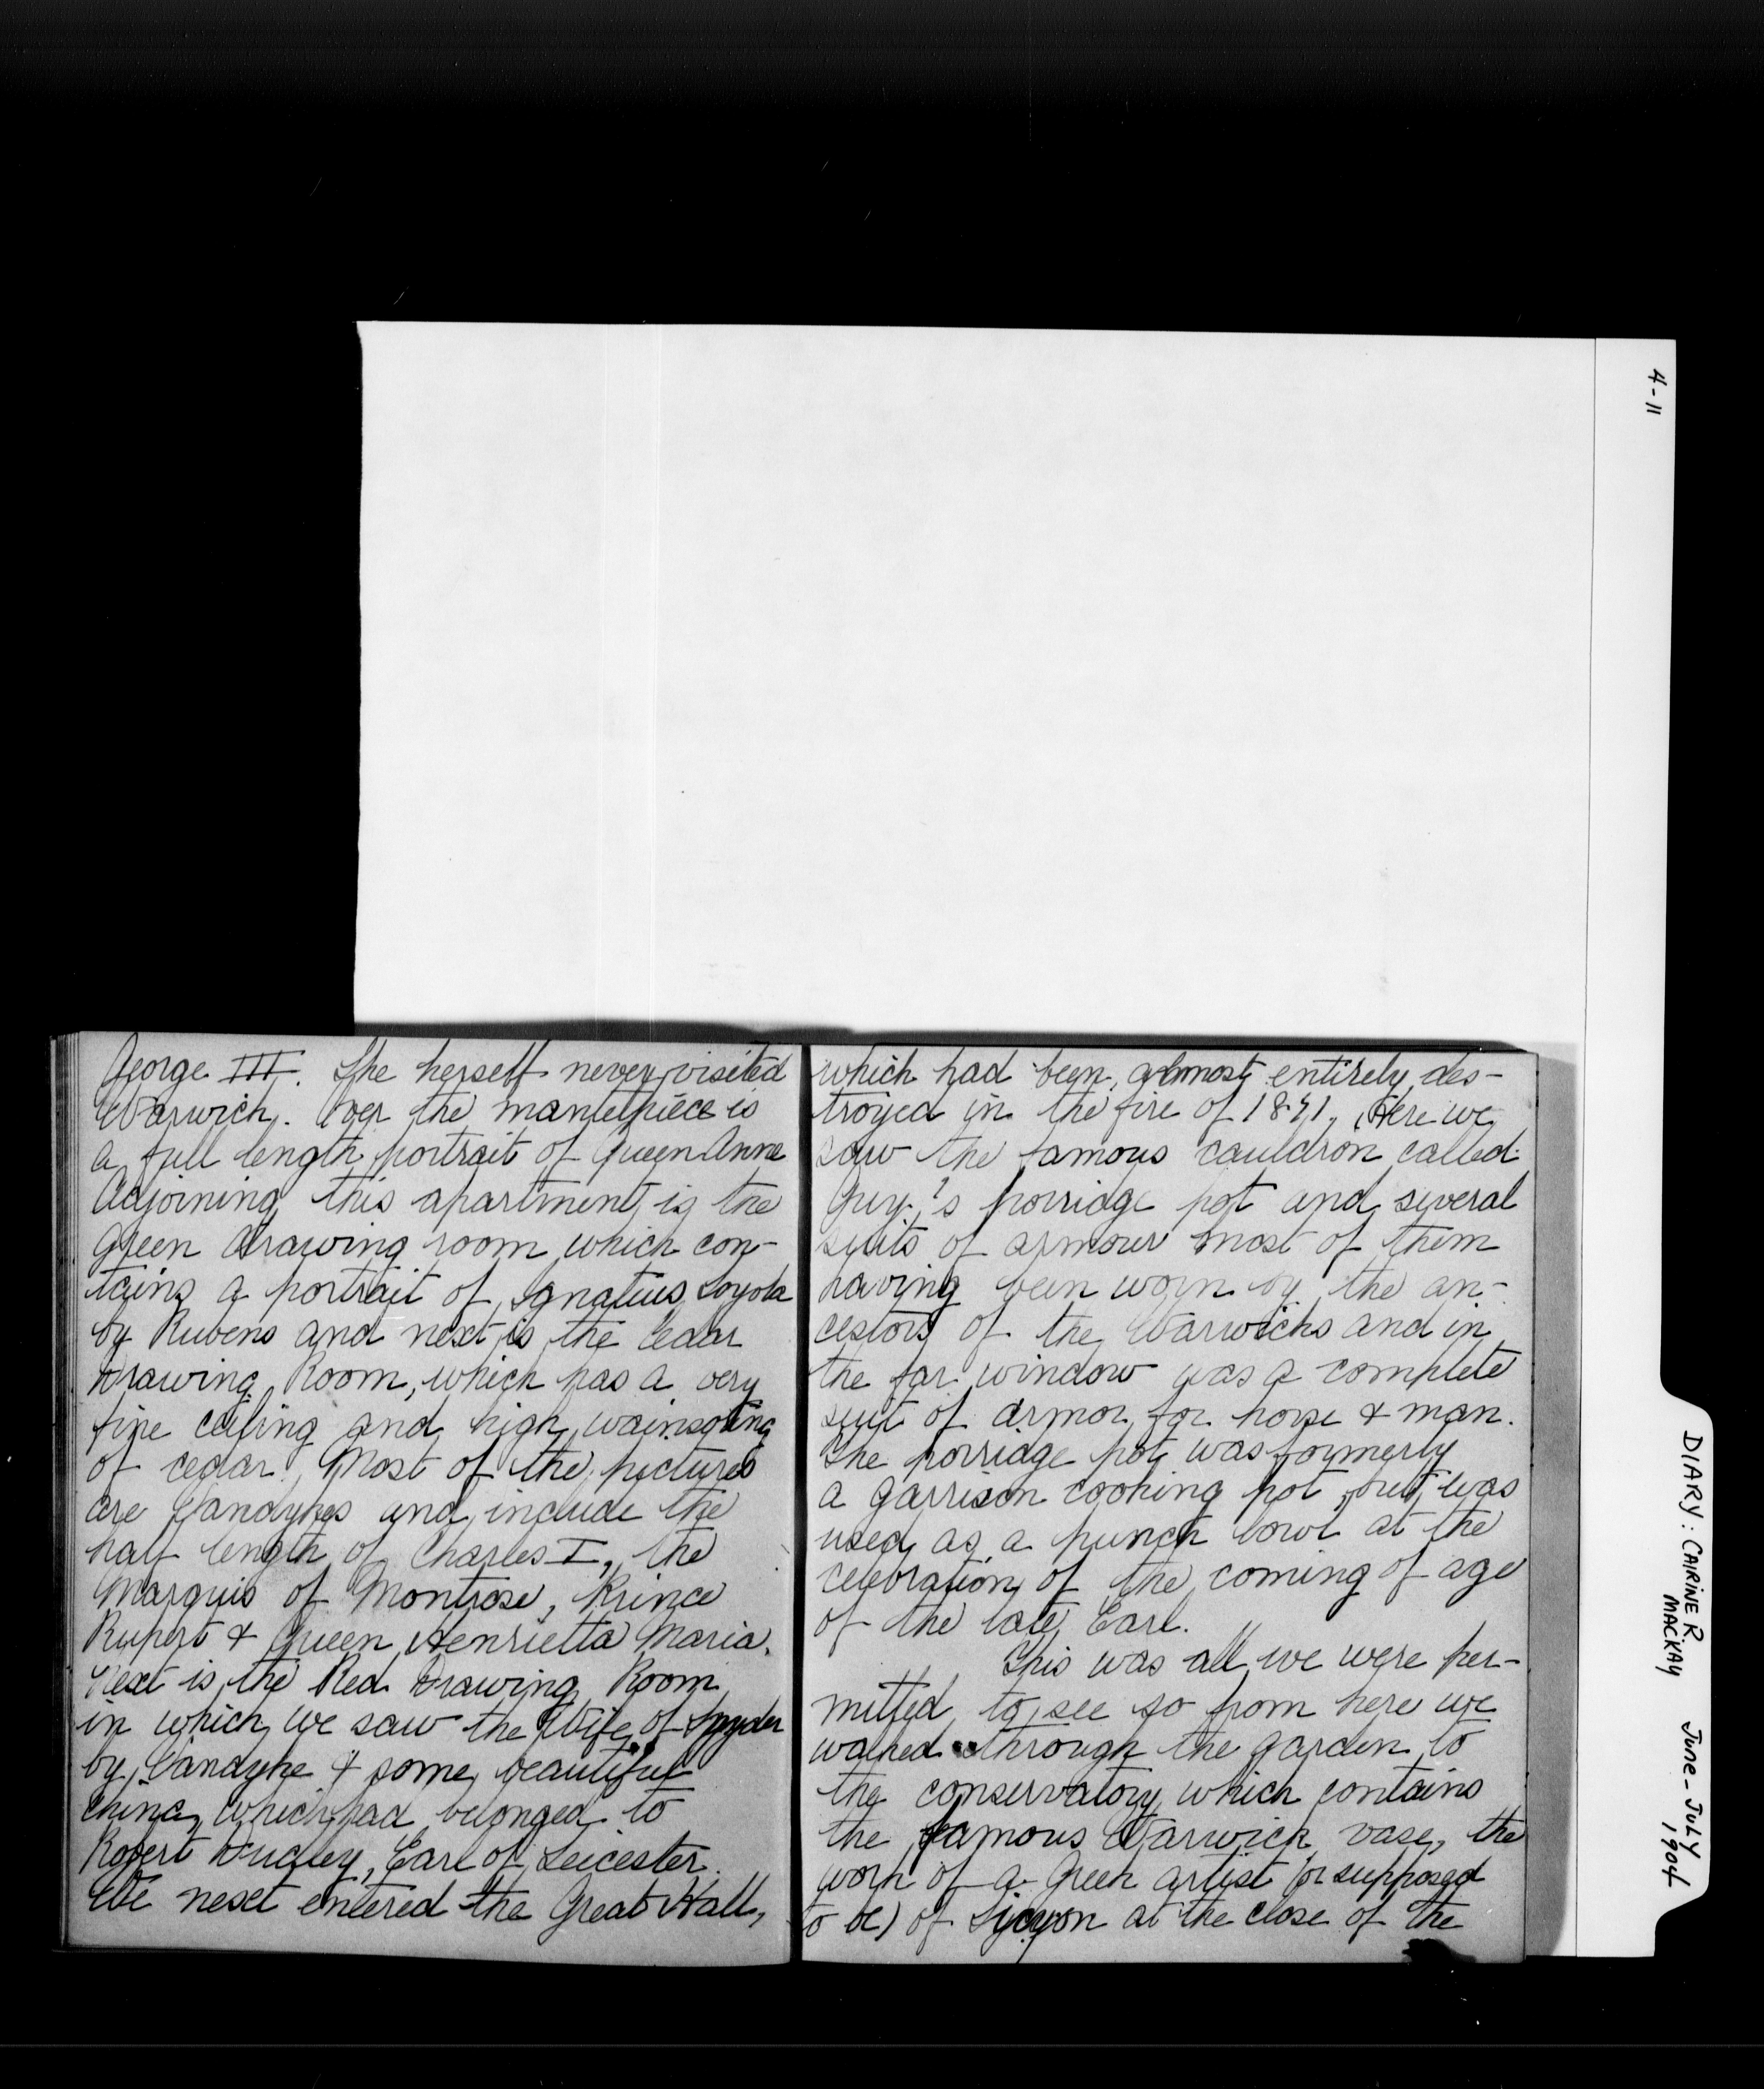 4-11
DIARY: CAIRINE R. MACKAY
JUNE-JULY 1904
George III. She herself never visited
Warwick. Over the mantelpiece is
a full length portrait of Queen Anne
Adjoining this apartment is the
Green drawing room which con-
tains a portrait of Ignatius Loyola
by Rubens and next is the Cedar
Drawing Room, which has a very
fine ceiling and high wainscoting
of cedar. Most of the pictures
are Vandykes and include the
half length of Charles I, the
Marquis of Montrose, Prince
Rupert & Queen Henrietta Maria.
Next is the Red Drawing Room
in which we saw the Wife of Snyder
by Vandyke & some beautiful
china, which had belonged to
Robert Dudley, Earl of Leicester.
We next entered the Great Hall,
which had been almost entirely des-
troyed in the fire of 1871. Here we
saw the famous cauldron called
Guy's porridge pot and several
suits of armour most of them
having been worn by the an-
cestors of the Warwicks and in
the far window was a complete
suit of armor for horse & man.
The porridge pot was formerly
a garrison cooking pot, but was
used as a punch bowl at the
celebration of the coming of age
of the late Earl.
This was all we were per-
mitted to see so from here we
walked through the garden to
the conservatory which contains
the famous Warwick vase, the
work of a Greek artist (or supposed
to be) of Sicyon at the close of the